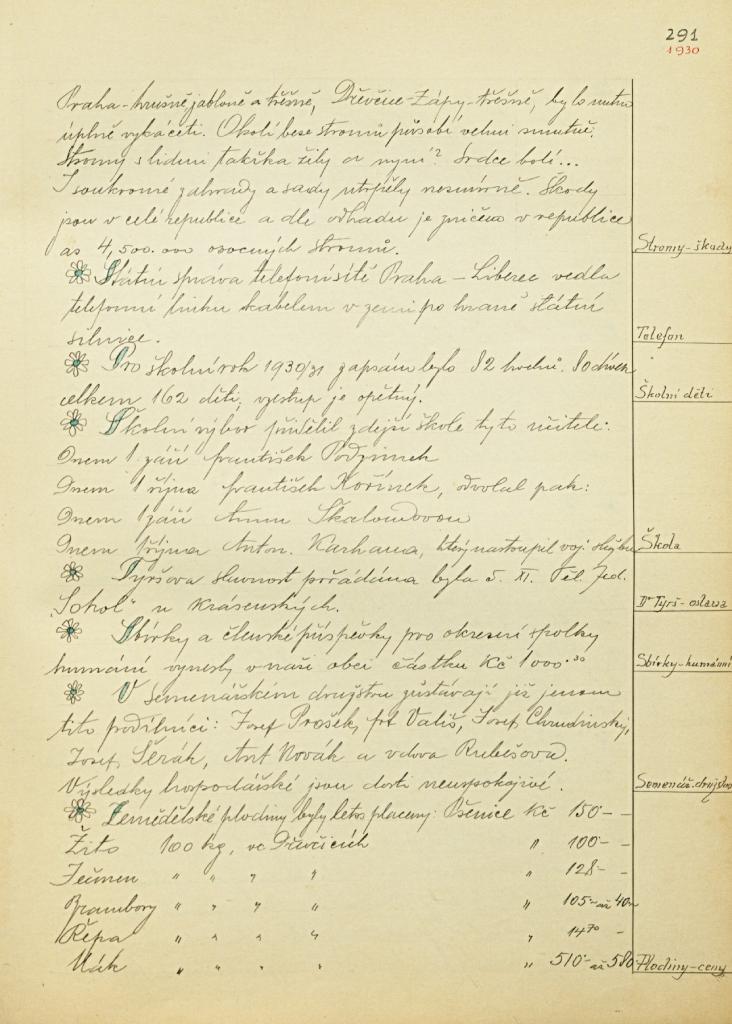 291
1930
Praha-hrušně jabloně a třešně, Dřevčice-Zápy-třešně, bylo nutno
úplně vykáceti. Okolí beze stromů působí velmi smutně.
Stromy s lidmi takřka žily a nyní? Srdce bolí...
I soukromé zahrady a sady utrpěly nesmírně. Škody
jsou v celé republice a dle odhadu je zničeno v republice
as 4,500.000 ovocných stromů.
Stromy-škody
Státní správa telefonní sítě Praha – Liberec vedla
telefonní linku skabelem v zemi po hraně státní
silnice.
Telefon
Pro školní rok 1930/31 zapsáno bylo 82 hochů. 80 dívek
celkem 162 dětí, vzestup je opětný.
Školní děti
Školní výbor přidělil zdejší škole tyto učitele:
Dnem 1 září František Podzimek
Dnem 1 října František Kořínek, odvolal pak:
Dnem 1 září Annu Škaloudovou
Dnem 1 října Anton. Karhana, který nastoupil voj. službu
Škola
Tyršova slavnost pořádána byla 5. XI. Těl. Jed.
"Sokol" u Krásenských.
Dr Tyrš-oslava
Sbírky a členské příspěvky pro okresní spolky
humání vynesly v naší obci částku Kč 1000.-
Sbírky-humánní
V Semenářském družstvu zůstávají již jenom
tito podílníci: Josef Prošek, frt Vališ, Josef Chrudinský,
Josef Šerák, Ant Novák a vdova Rubešova.
Výsledky hospodářské jsou dosti neuspokojivé.
Semenář. družstvo
Zemědělské plodiny byly letos placeny: Pšenice Kč 150 - -
Žito 100 kg, ve Dřevčicích " 100 - -
Ječmen " " " " " 128 - -
Brambory " " " " " 105 - až 40 -
Řepa " " " " " 14 70 -
Mák " " " " " 510 - až 580
Plodiny-ceny